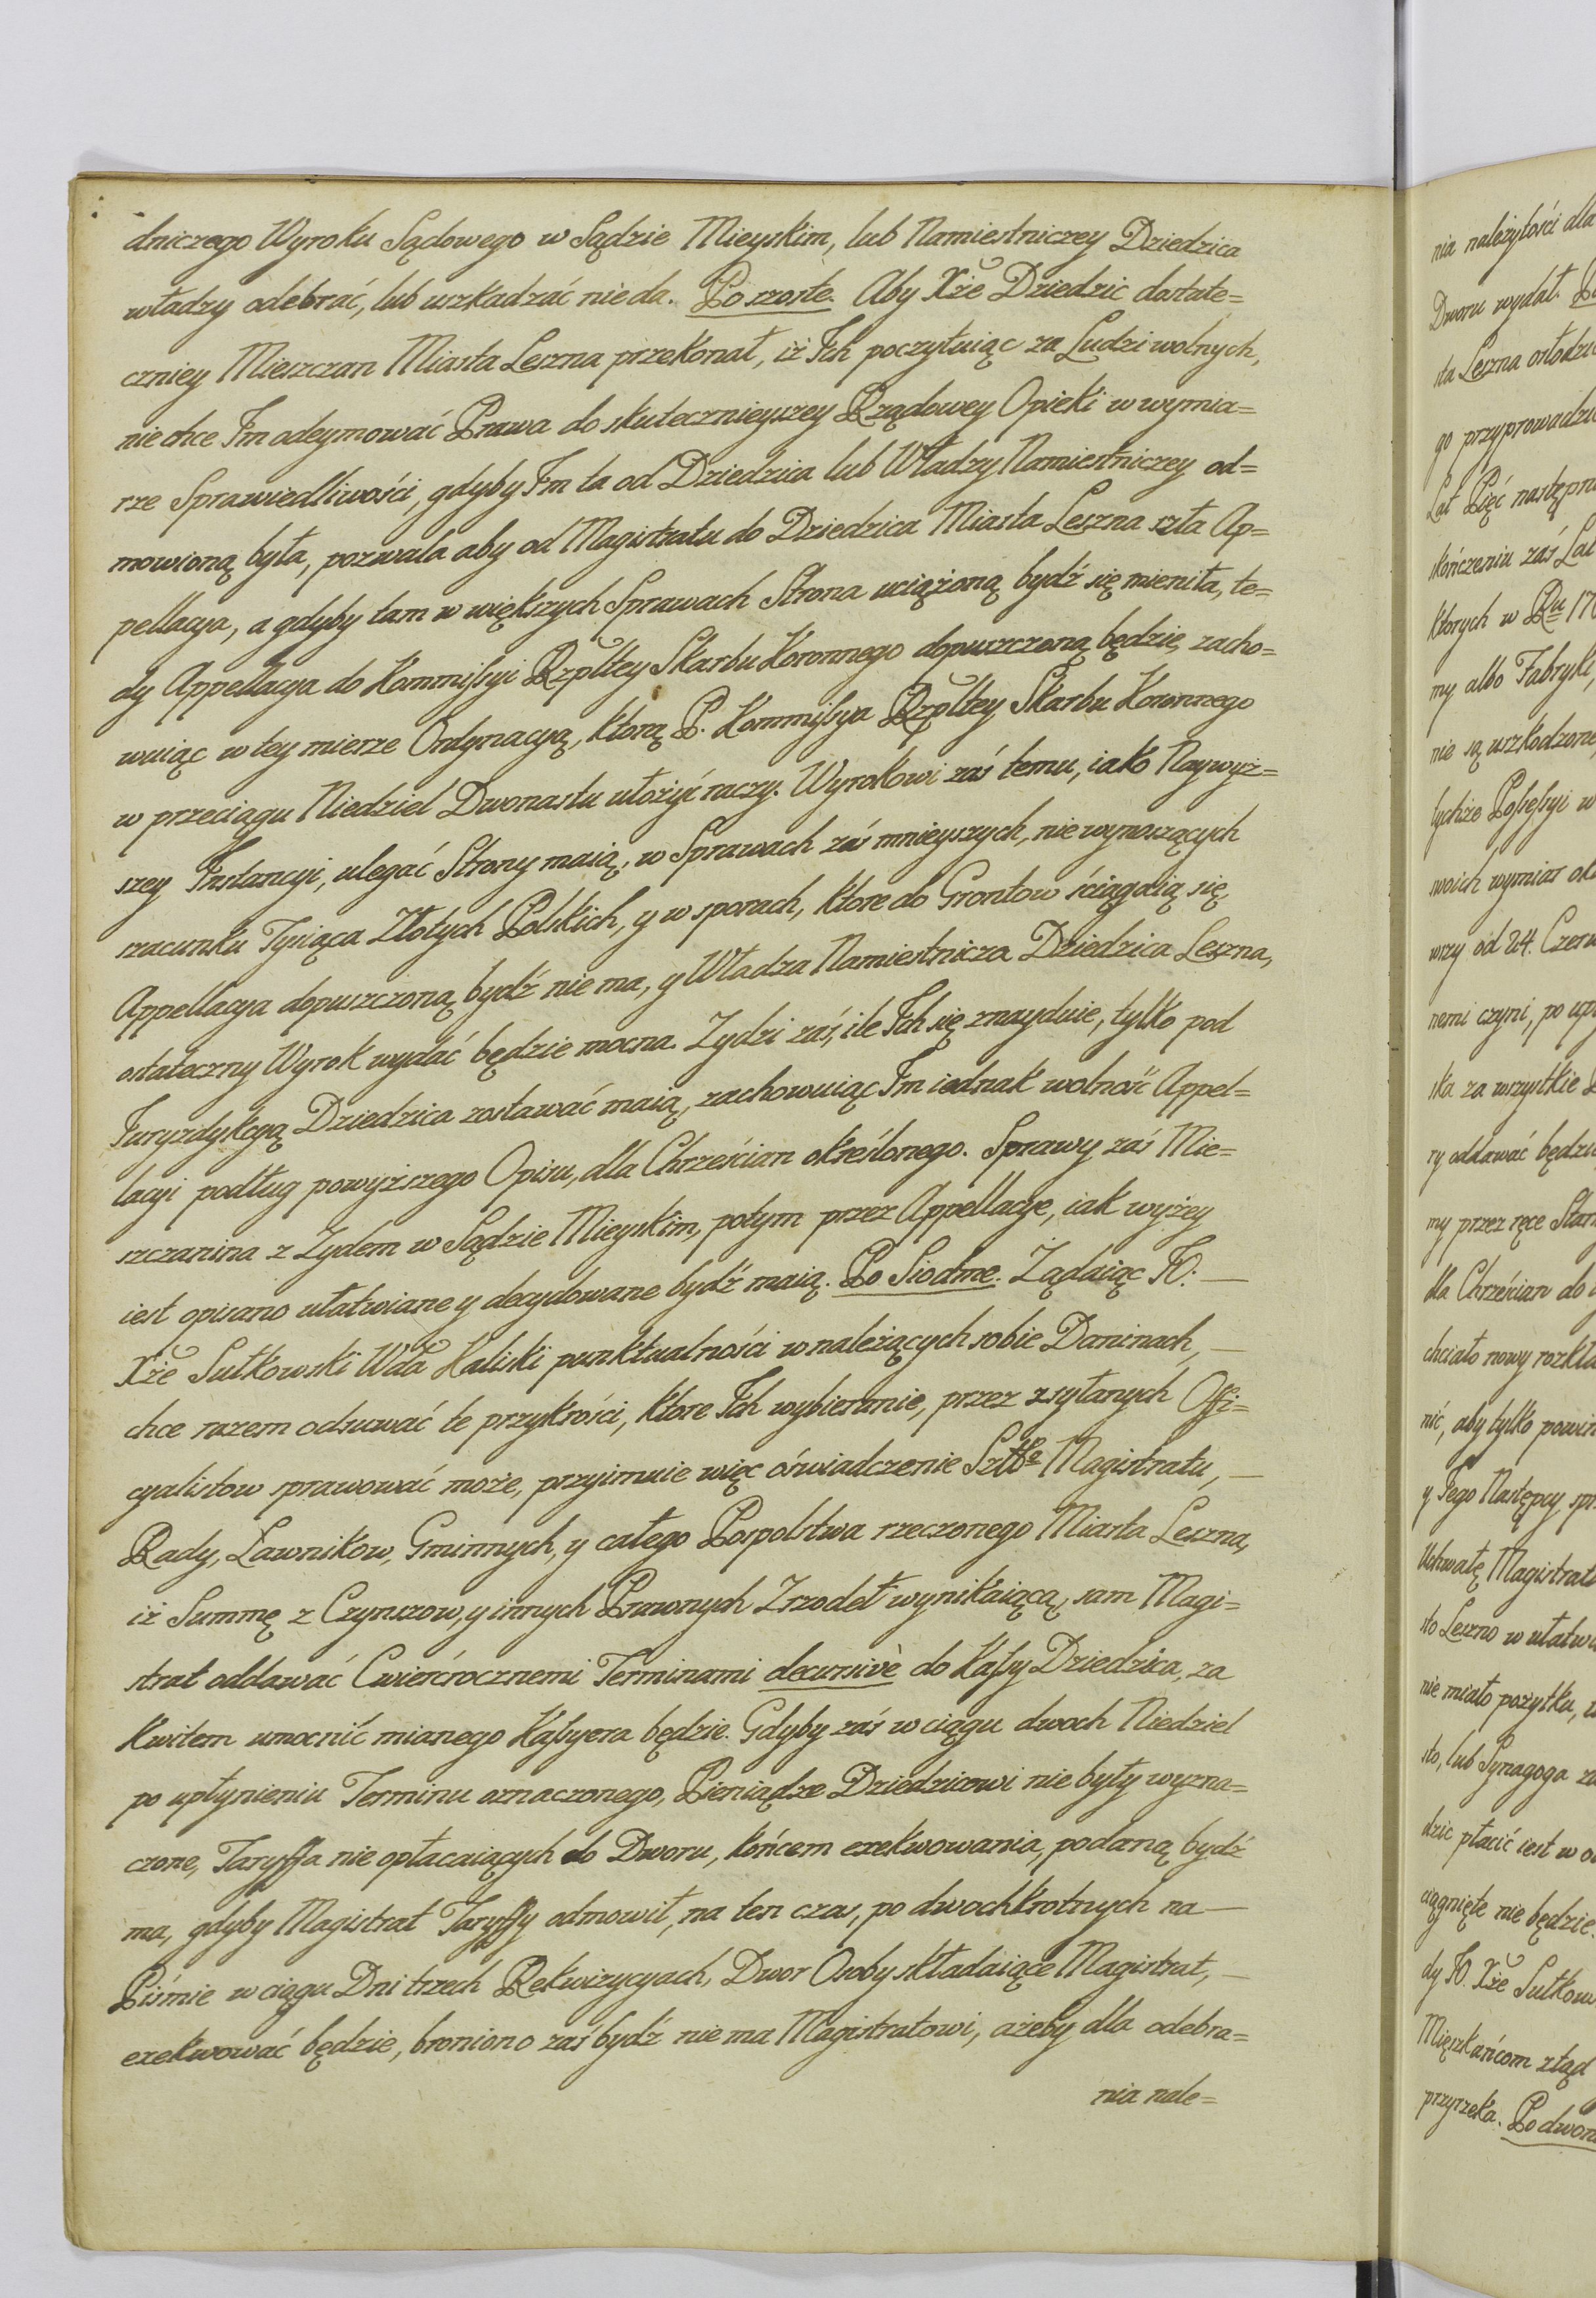 dniczego Wyroku Sądowego w Sądzie Mieyskim, lub Namiestniczey Dziedzica
władzy odebrać, lub uszkadzać nie da. Po szoste. Aby Xże Dziedzic dostate=
czniey Mieszczan Miasta Leszna przekonał, iż Ich poczytuiąc za Ludzi wolnych,
nie chce Im odeymować Prawa do skutecznieyszey Rządowey Opieki w wymia=
rze Sprawiedliwości, gdyby Im ta od Dziedzica lub Władzy Namiestniczey od=
mowioną była, pozwala aby od Magistratu do Dziedzica Miasta Leszna szła Ap=
pellacya, a gdyby tam w większych Sprawach Strona uciążoną bydź się mieniła, te=
dy Appellacya do Kommissyi Rzpltey Skarbu Koronnego dopuszczoną będzie, zacho=
wuiąc w tey mierze Ordynacyą, którą P. Kommissya Rzpltey Skarbu Koronnego
w przeciągu Niedziel Dwonastu ułożyć raczy. Wyrokowi zaś temu, iako Naywyż=
szey Instancyi, ulegać Strony maią, w Sprawach zaś mnieyszych, nie wynoszących
szacunku Tysiąca Złotych Polskich, y w sporach, ktore do Grontow ściągaią się,
Appellacya dopuszczoną bydź nie ma, y Władza Namiestnicza Dziedzica Leszna,
ostateczny Wyrok wydać będzie mocna. Zydzi zaś, ile Ich się znayduie, tylko pod
Juryzdykcyą Dziedzica zostawać maią, zachowuiąc Im iednak wolność Appel=
lacyi podług powyższego Opisu, dla Chrześcian określonego. Sprawy zaś Mie=
szczanina z Zydem w Sądzie Mieyskim, potym przez Appellacye, iak wyżey
iest opisano ułatwiane y decydowane bydź maią. Po Siodme. Żądaiąc JO: —
Xże Sułkowski Wda Kaliski punktualności w należących sobie Daninach, —
chce razem odsuwać te przykrości, ktore Ich wybieranie, przez zsyłanych Offi=
cyalistow sprawować może, przyimuie więc oświadczenie Magistratu, —
Rady, Ławnikow, Gminnych, y całego Pospolstwa rzeczonego Miasta Leszna,
iż Summę z Czynszow, y innych Prawnych Zrzodeł wynikaiącą, sam Magi=
strat oddawać Cwierćrocznemi Terminami decursivè do Kassy Dziedzica, za
Kwitem umocnić mianego Kassyera będzie. Gdyby zaś w ciągu dwoch Niedziel
po upłynieniu Terminu oznaczonego, Pieniądze Dziedzicowi nie były wyzna=
czone, Taryffa nie opłacaiących do Dworu, końcem exekwowania, podaną bydź
ma, gdyby Magistrat Taryffy odmowił, na ten czas, po dwochkrotnych na —
Piśmie w ciągu Dni trzech Rekwizycyach, Dwor Osoby składaiące Magistrat, —
exekwować będzie, broniono zaś bydź nie ma Magistratowi, ażeby dla odebra=
nia nale=
nia należytości dla
Dworu wydał.
sta Leszna
go
Lat Pięć
skończeniu zaś
ktorych w Ru
my albo Fabryki,
nie są uszkodzone,
tychże Possessyi w
swoich wymiar
wszy od 24.
nemi czyni, po
ska za wszystkie
ry oddawać
my przez ręce
dla Chrześcian do
chciało nowy
nić, aby tylko
y Jego Następcy
Uchwałę
sto Leszno w
nie miało pożytku,
sto, lub Synagoga
dzic płacić iest w
ciągnięte nie będzie.
dy JO. Xże
Mięszkańcom ztąd
przyrzeka.